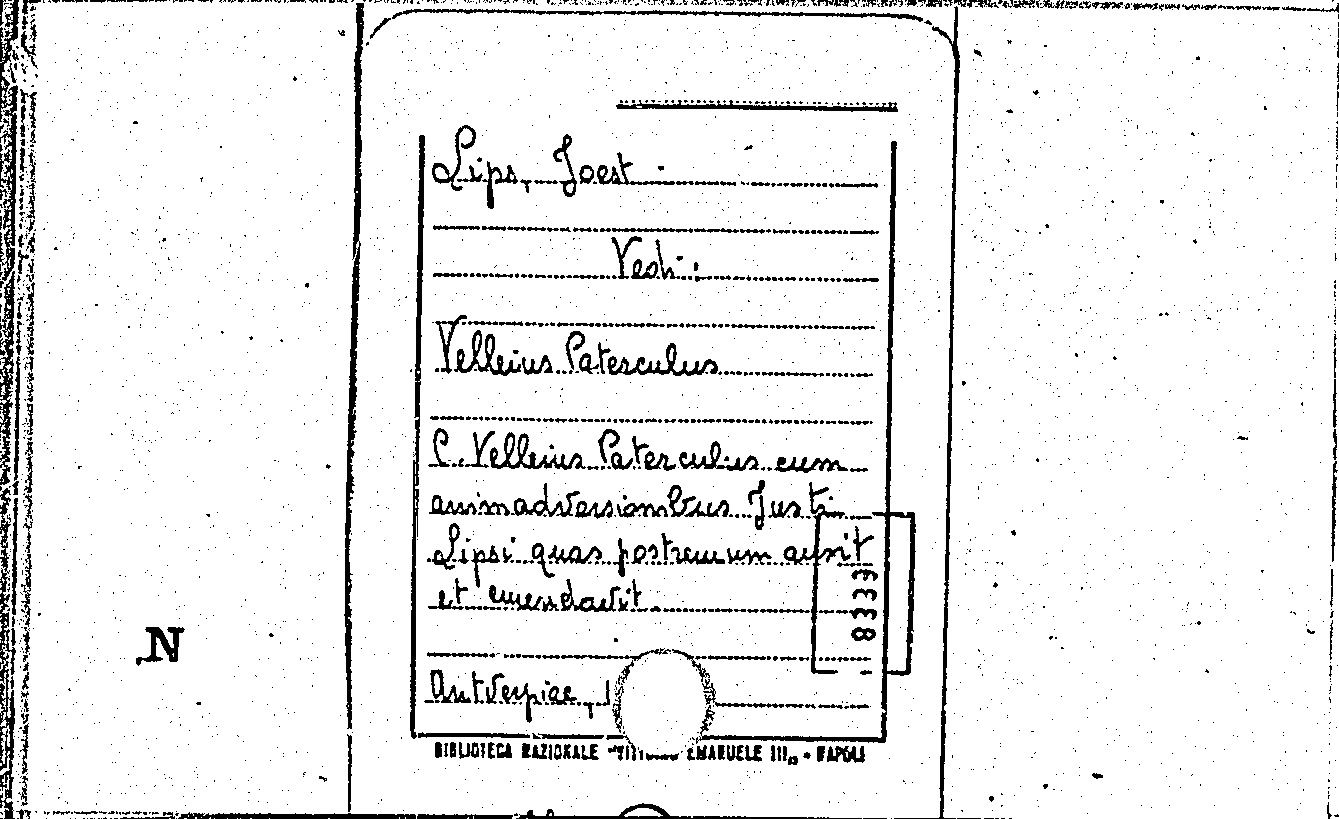 Lips, Joest.
Vedi:
Velleius Paterculus
C. Velleius Paterculus cum
animadversionibus Justi
Lipsi quas postremum auxit
et emendavit.
8339
N
Antverpiae, 1
BIBLIOTECA NAZIONALE "VITTORIO EMANUELE III„ - NAPOLI